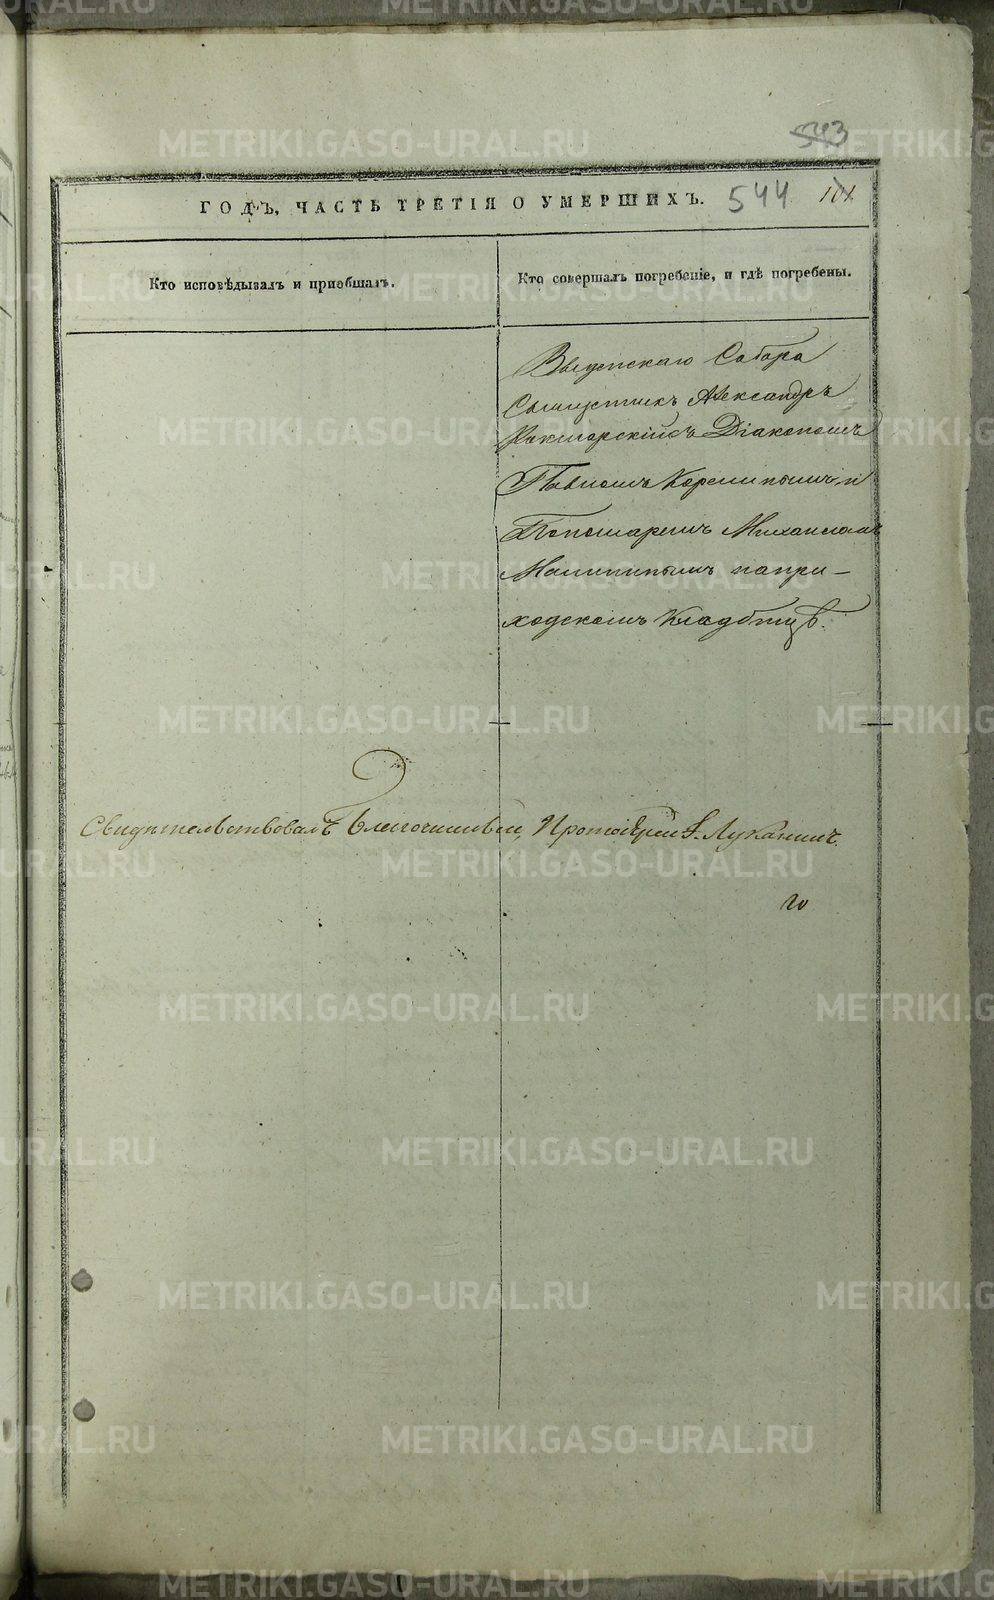 543
ГОДЪ, ЧАСТЬ ТРЕТІЯ О УМЕРШИХЪ. 544 101
Кто исповѣдывалъ и пріобщалъ.
Кто совершалъ погребеніе, и гдѣ погребены.
Собора
Священникъ Александръ
Діакономъ
Павломъ и
Пономаремъ Михаиломъ
напри-
ходскомъ Кладбищѣ.
Свидѣтельствовалъ Благочинный, Протоіерей Луканинъ.
METRIKI.GASO-URAL.RU